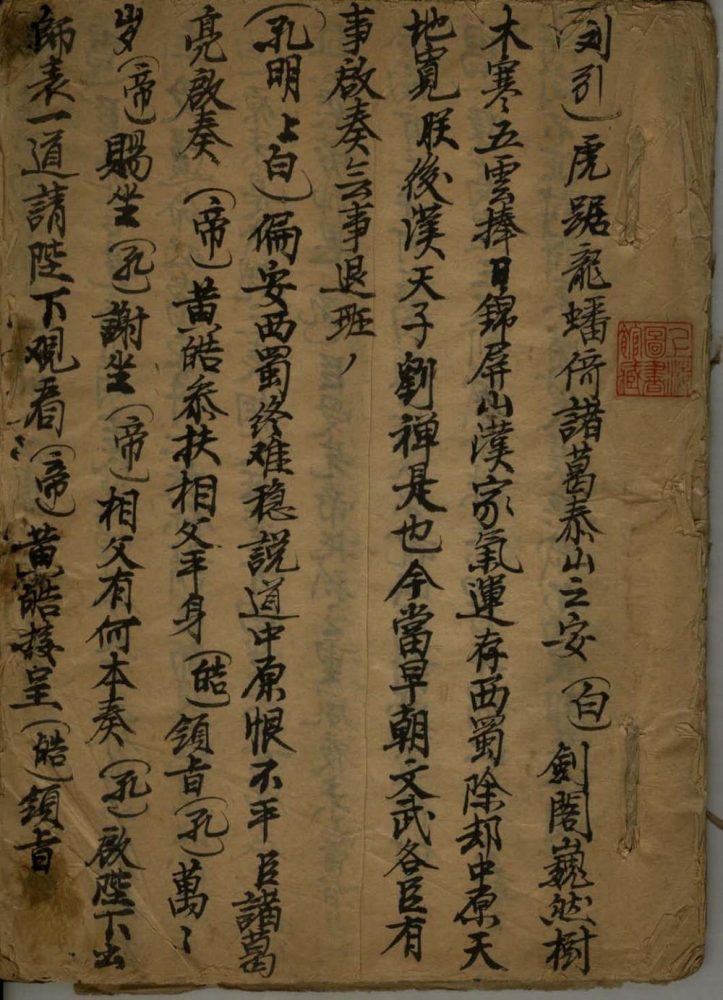 (刘引)虎踞龍蟠倚諸葛泰山之安(白)劍閣巍然樹
木寒五雲捧日錦屏山漢家氣運存西蜀除却中原天
地寬朕後漢天子劉禅是也今當早朝文武各臣有
事啟奏無事退班
(孔明上白)偏安西蜀终难稳説道中原恨不平臣諸葛
亮啟奏(帝)黄皓叅扶相父平身(皓)領旨(孔)萬〻
岁(帝)賜坐(孔)謝坐(帝)相父有何本奏(孔)啟陛下出
師表一道請陛下观看(帝)黄皓接呈(皓)領旨
圖書
館藏